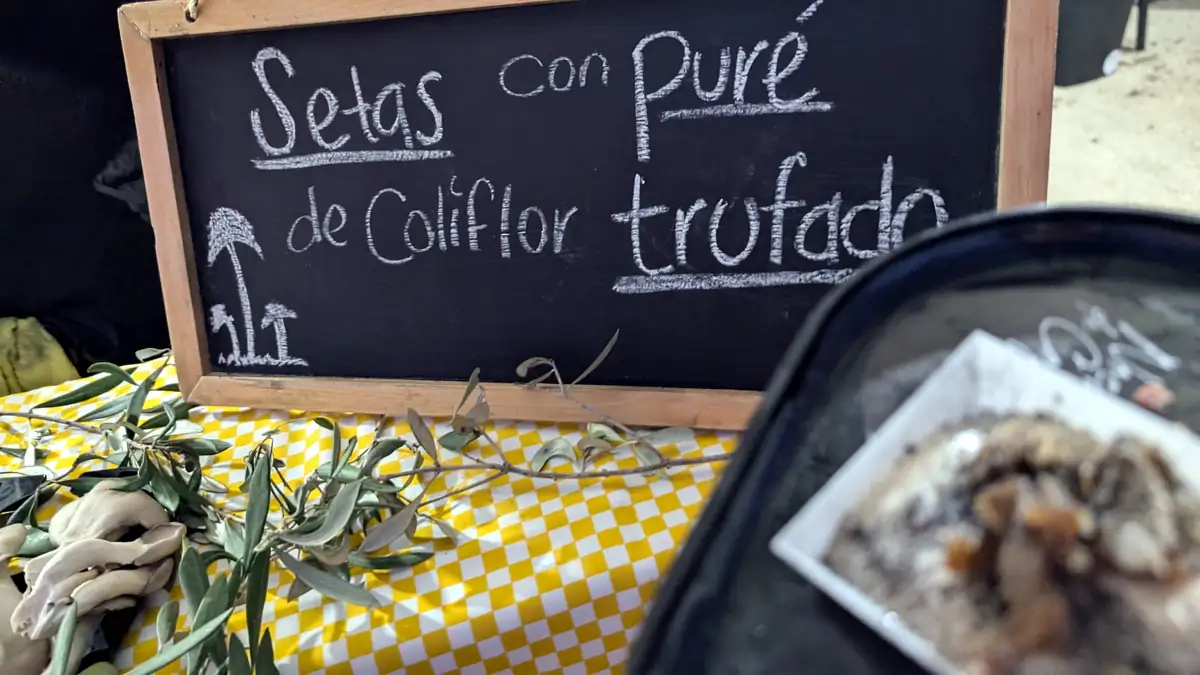 Setas con puré
de Coliflor trufado